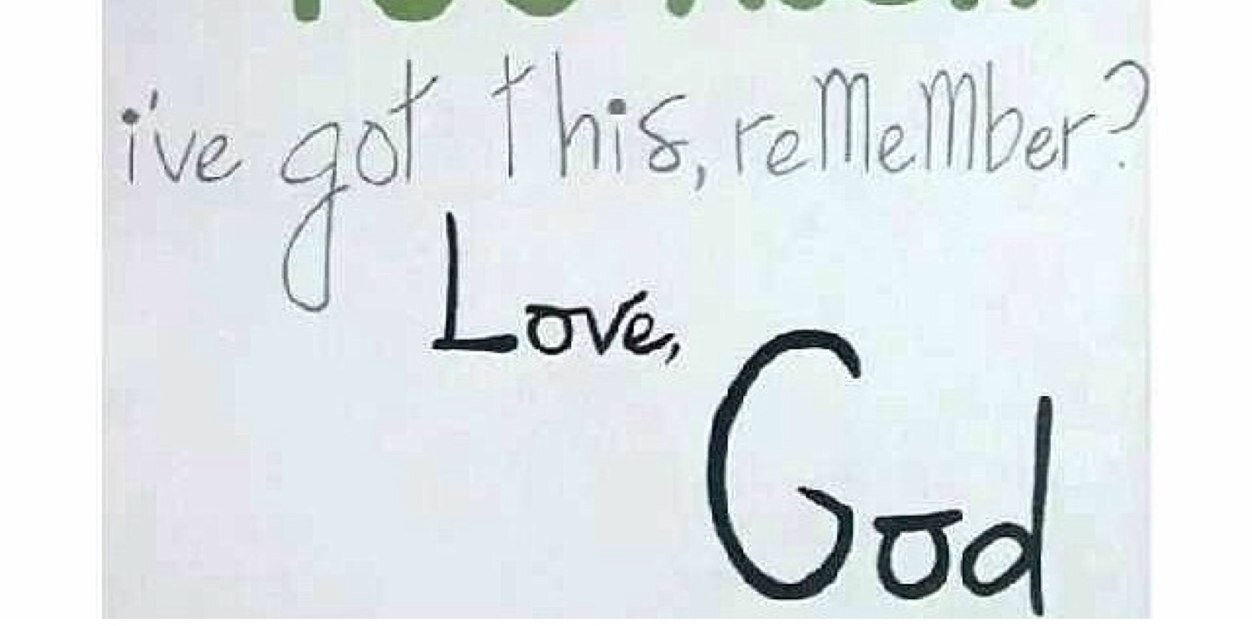 i've got this, remember?
Love,
God